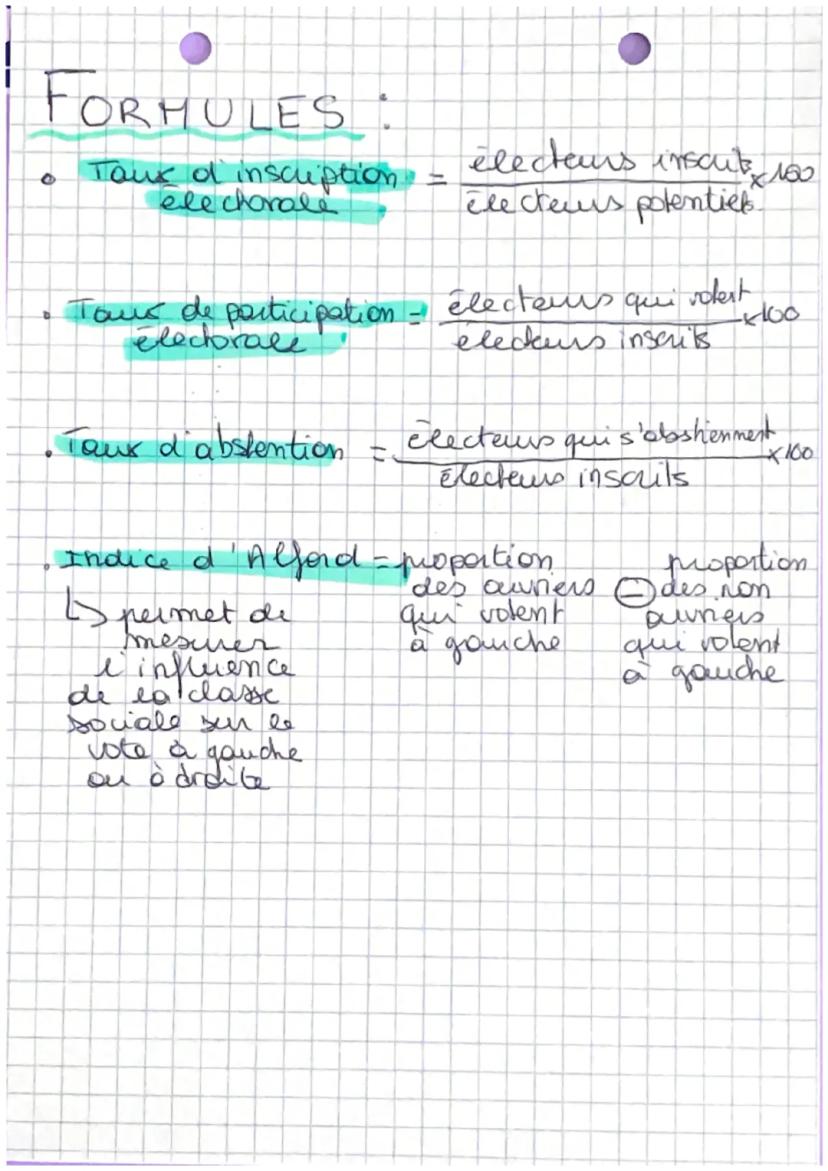 FORMULES :
• Taux d'inscription électorale = électeurs inscrits / électeurs potentiels × 100
• Taux de participation électorale = électeurs qui votent / électeurs inscrits × 100
• Taux d'abstention = électeurs qui s'abstiennent / électeurs inscrits × 100
• Indice d'Alford = proportion des ouvriers qui votent à gauche ⊖ proportion des non ouvriers qui votent à gauche
↳ permet de
mesurer
l'influence
de la classe
sociale sur le
vote à gauche
ou à droite